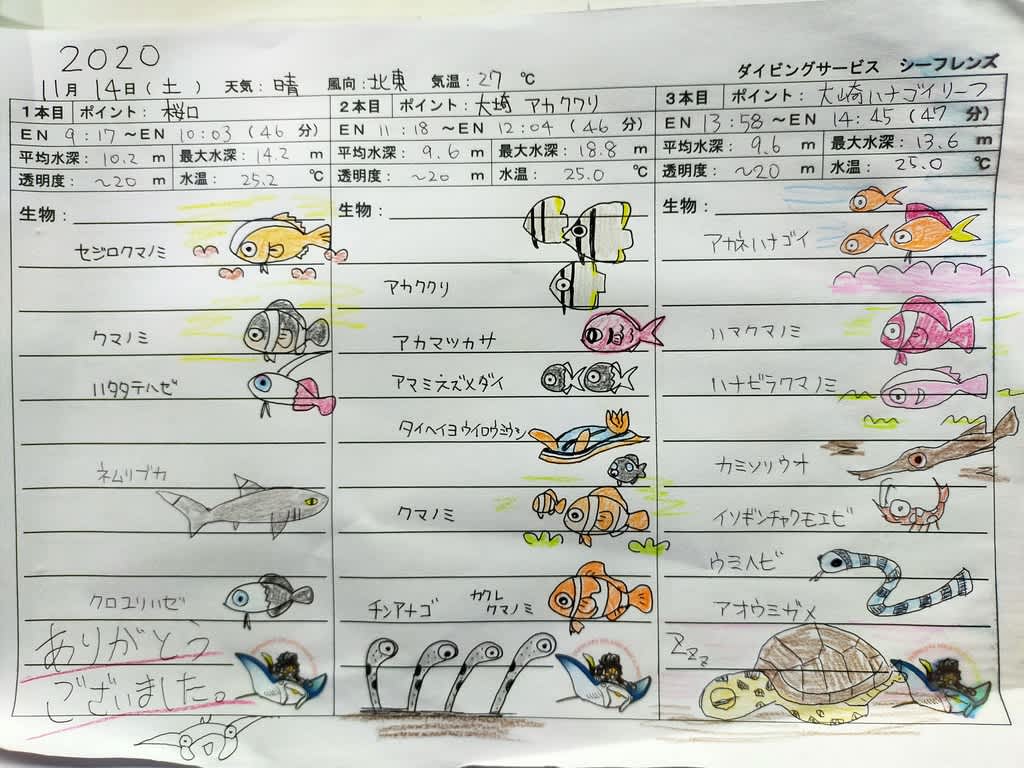 2020
11月 14日(土) 天気:晴 風向:北東 気温:27 ℃ ダイビングサービス シーフレンズ
1本目 ポイント: 桜口
EN 9:17~EN 10:03(46分)
平均水深: 10.2 m 最大水深: 14.2 m
透明度: ~20 m 水温: 25.2 ℃
生物:
セジロクマノミ
クマノミ
ハタタテハゼ
ネムリブカ
クロユリハゼ
ありがとう
ございました。
2本目 ポイント: 大埼 アカククリ
EN 11:18~EN 12:04(46分)
平均水深: 9.6 m 最大水深: 18.8 m
透明度: ~20 m 水温: 25.0 ℃
生物:
アカククリ
アカマツカサ
アマミネズメダイ
タイヘイヨウイロウミウシ
クマノミ
チンアナゴ カクレクマノミ
3本目 ポイント: 大崎ハナゴイリーフ
EN 13:58~EN 14:45(47分)
平均水深: 9.6 m 最大水深: 13.6 m
透明度: ~20 m 水温: 25.0 ℃
生物:
アカネハナゴイ
ハマクマノミ
ハナビラクマノミ
カミソリウオ
イソギンチャクモエビ
ウミヘビ
アオウミガメ
ZZZ